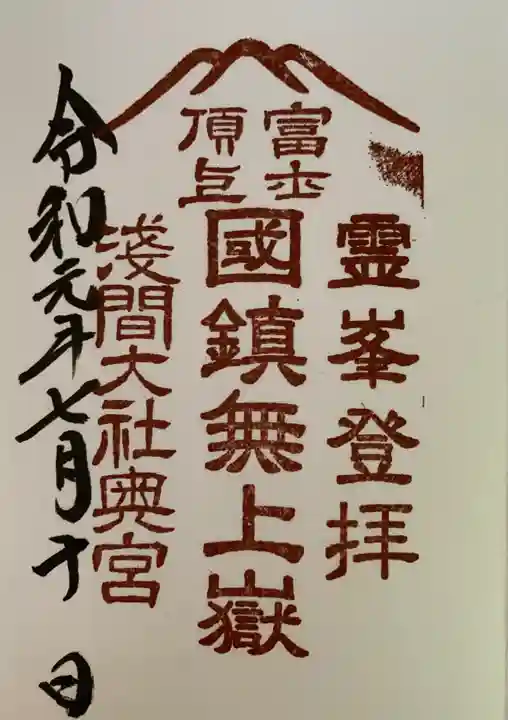 富士
頂上
霊峯登拝
國鎮無上嶽
淺間大社奥宮
令和元年七月十 日